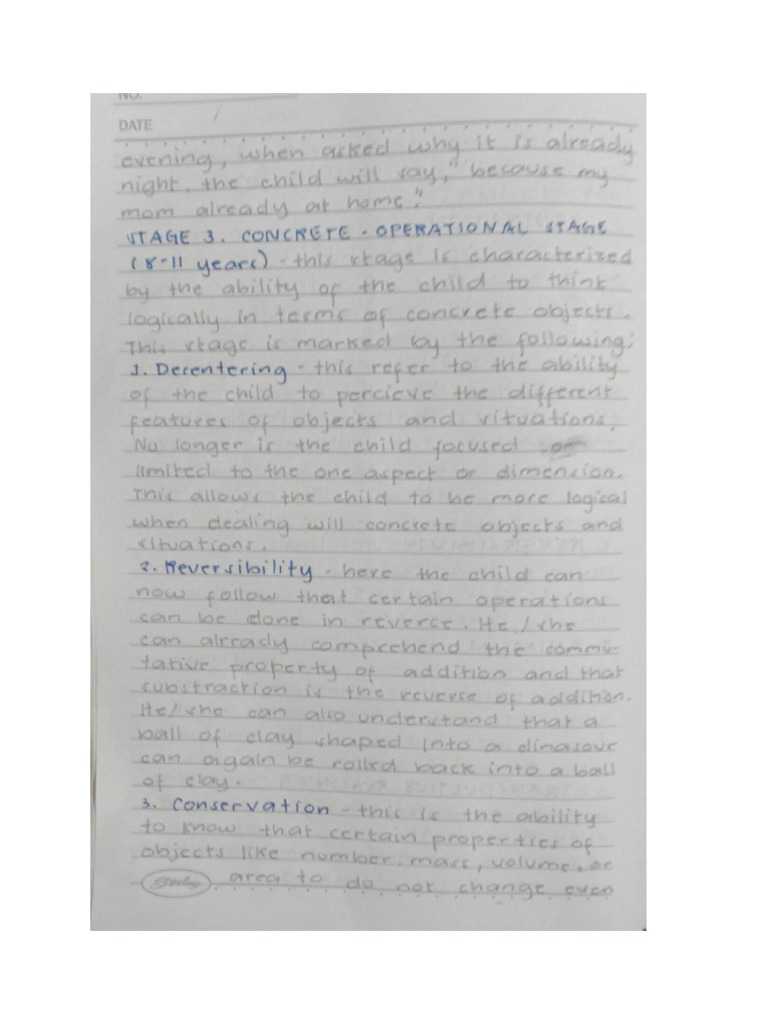 NO.
DATE /
evening, when asked why it is already
night, the child will say, "because my
mom already at home."
STAGE 3. CONCRETE - OPERATIONAL STAGE
(8-11 years) - this stage is characterized
by the ability of the child to think
logically in terms of concrete objects.
This stage is marked by the following:
1. Decentering - this refer to the ability
of the child to percieve the different
features of objects and situations.
No longer is the child focused or
limited to the one aspect or dimension.
This allows the child to be more logical
when dealing will concrete objects and
situations.
2. Reversibility - here the child can
now follow that certain operations
can be done in reverse. He/she
can already comprehend the commu-
tative property of addition and that
substraction is the reverse of addition.
He/she can also understand that a
ball of clay shaped into a dinasour
can again be rolled back into a ball
of clay.
3. Conservation - this is the ability
to know that certain properties of
objects like number, mass, volume, or
area to do not change even